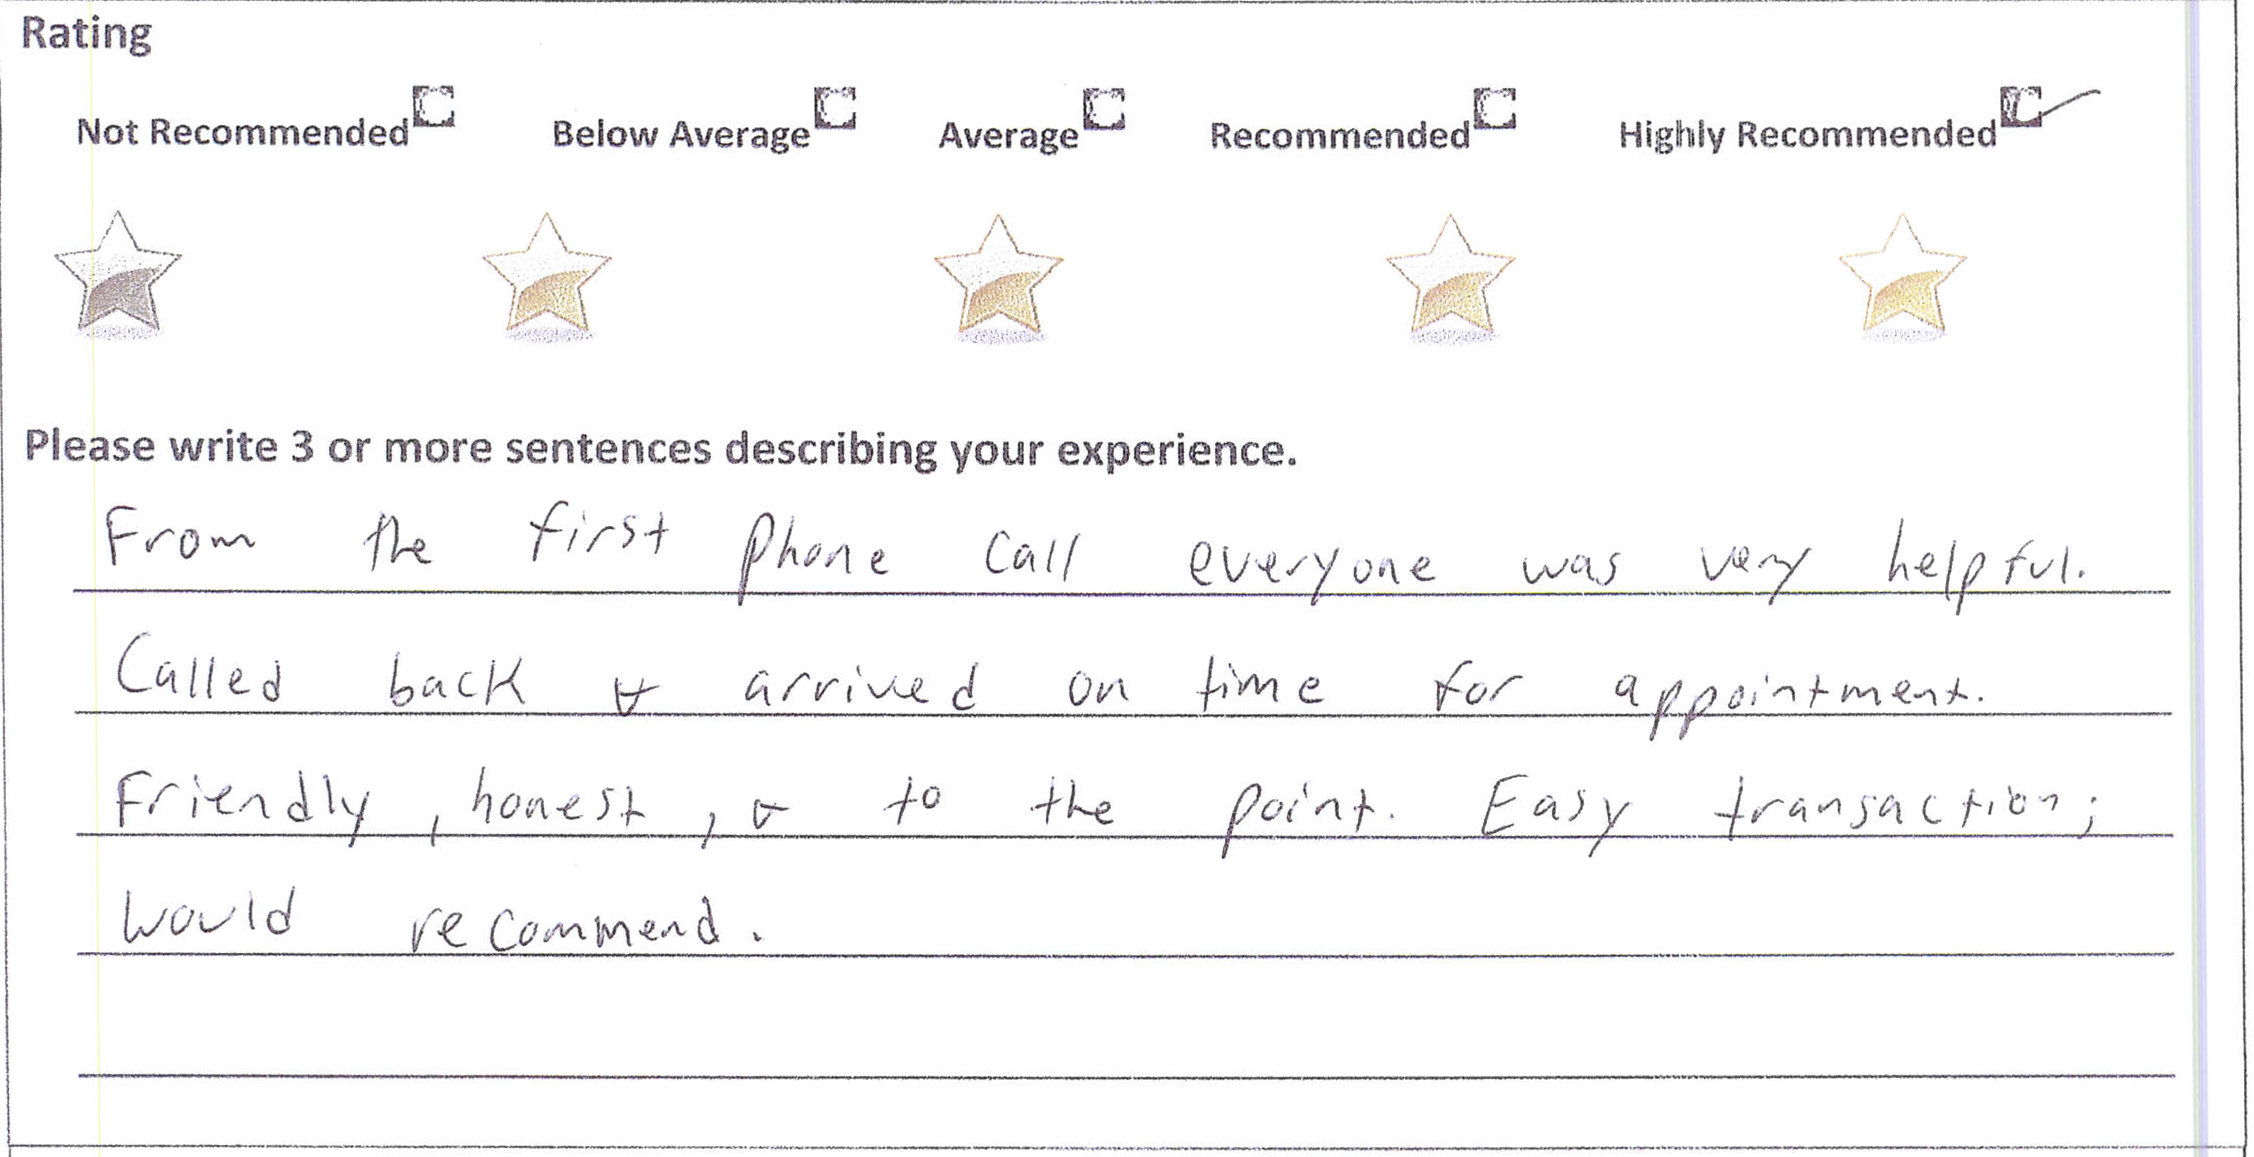 Rating
Not Recommended Below Average Average Recommended Highly Recommended
Please write 3 or more sentences describing your experience.
From the first phone call everyone was very helpful.
Called back & arrived on time for appointment.
Friendly, honest, & to the point. Easy transaction;
would recommend.